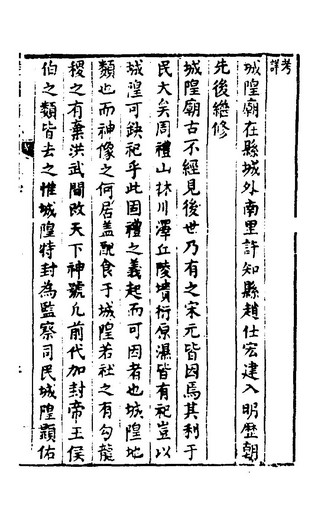 考詳
城隍廟在縣城外南里許知縣趙仕宏建入明歷朝
先後繼修
城隍廟古不經見後世乃有之宋元皆因焉其利于
民大矣周禮山林川澤丘陵墳衍原濕皆有祀豈以
城湟可缺祀乎此固禮之義起而可因者也城隍地
類也而神像之何居盖配食于城隍若社之有勾龍
稷之有棄洪武間改天下神號凡前代加封帝王侯
伯之類皆去之惟城隍特封為監察司民城隍顯佑